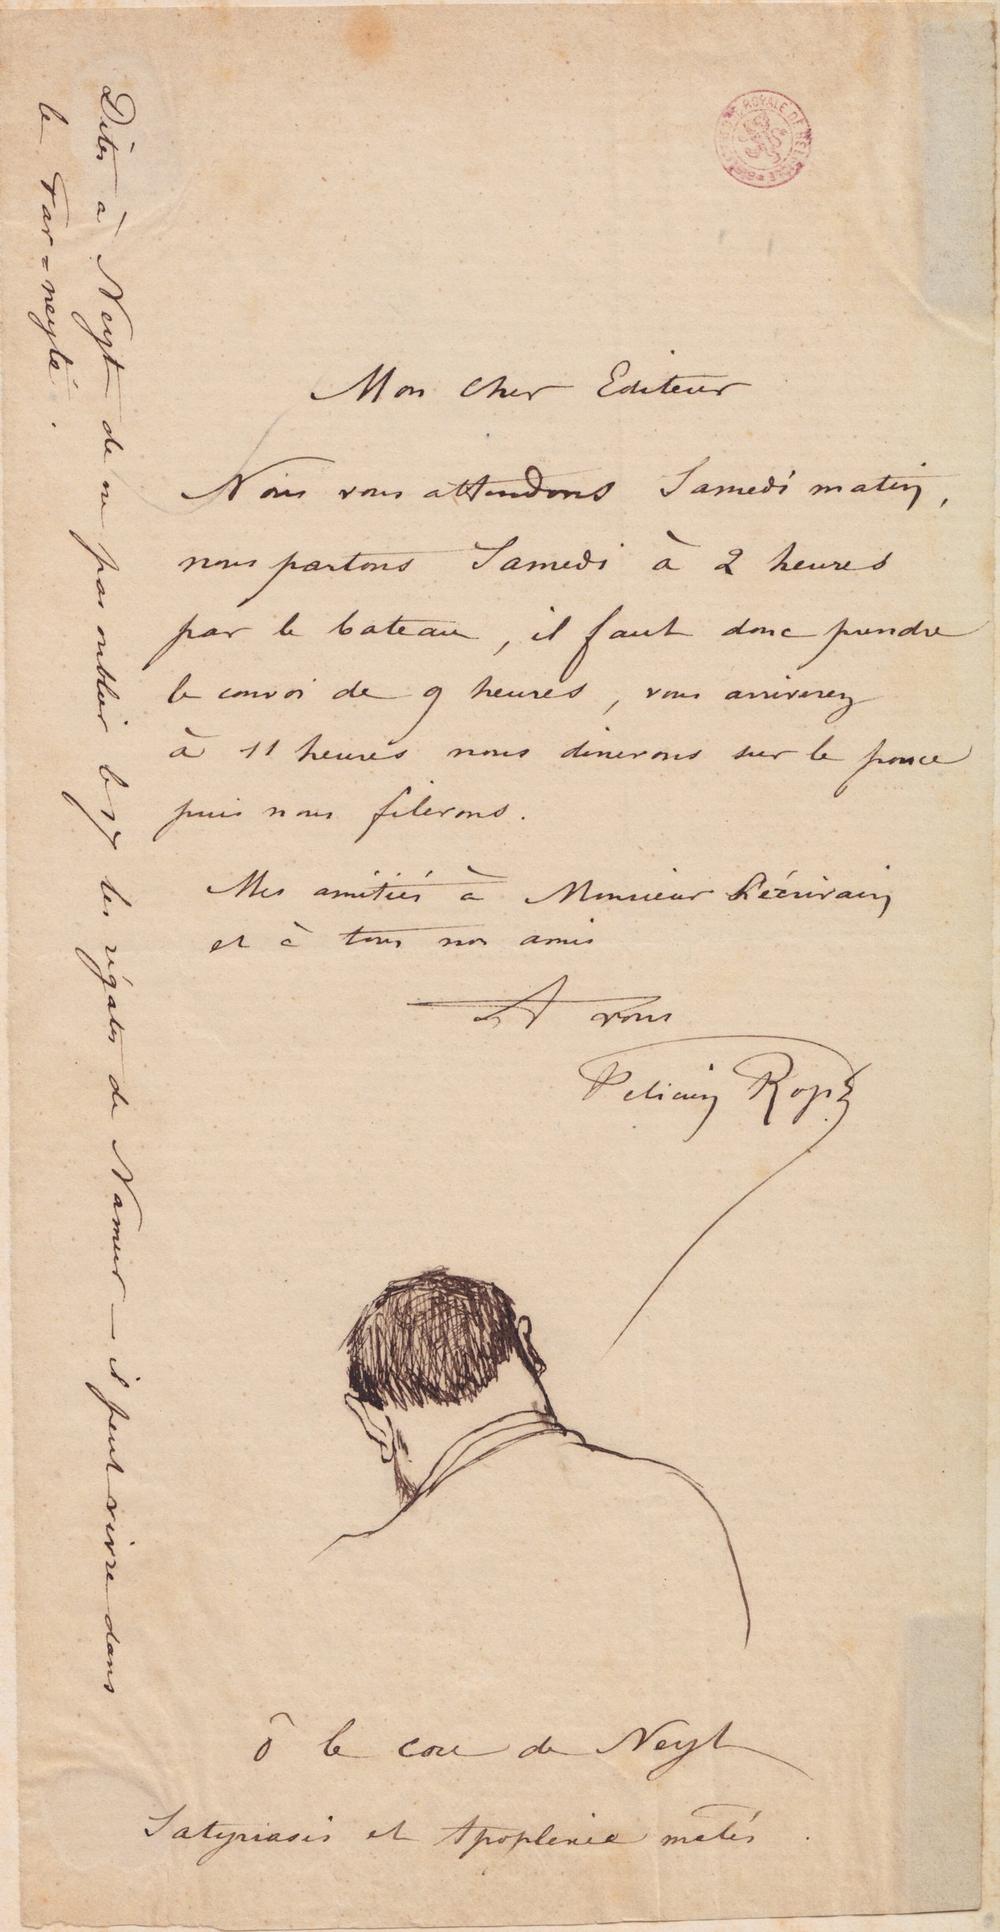 Mon cher Editeur
Nous vous attendons Samedi matin,
nous partons Samedi à 2 heures
par le bateau, il faut donc prendre
le convoi de 9 heures, vous arriverez
à 11 heures nous dinerons sur le pouce
puis nous filerons.
Mes amitiés à Monsieur Lécrivain
et à tous nos amis
A vous
Félicien Rops
ô le cou de Neyt
Satyriasis et Apoplexie mêlés.
Dites à Neyt de ne pas oublier le les régates de Namur – il peut vivre dans
le Far=neyté.